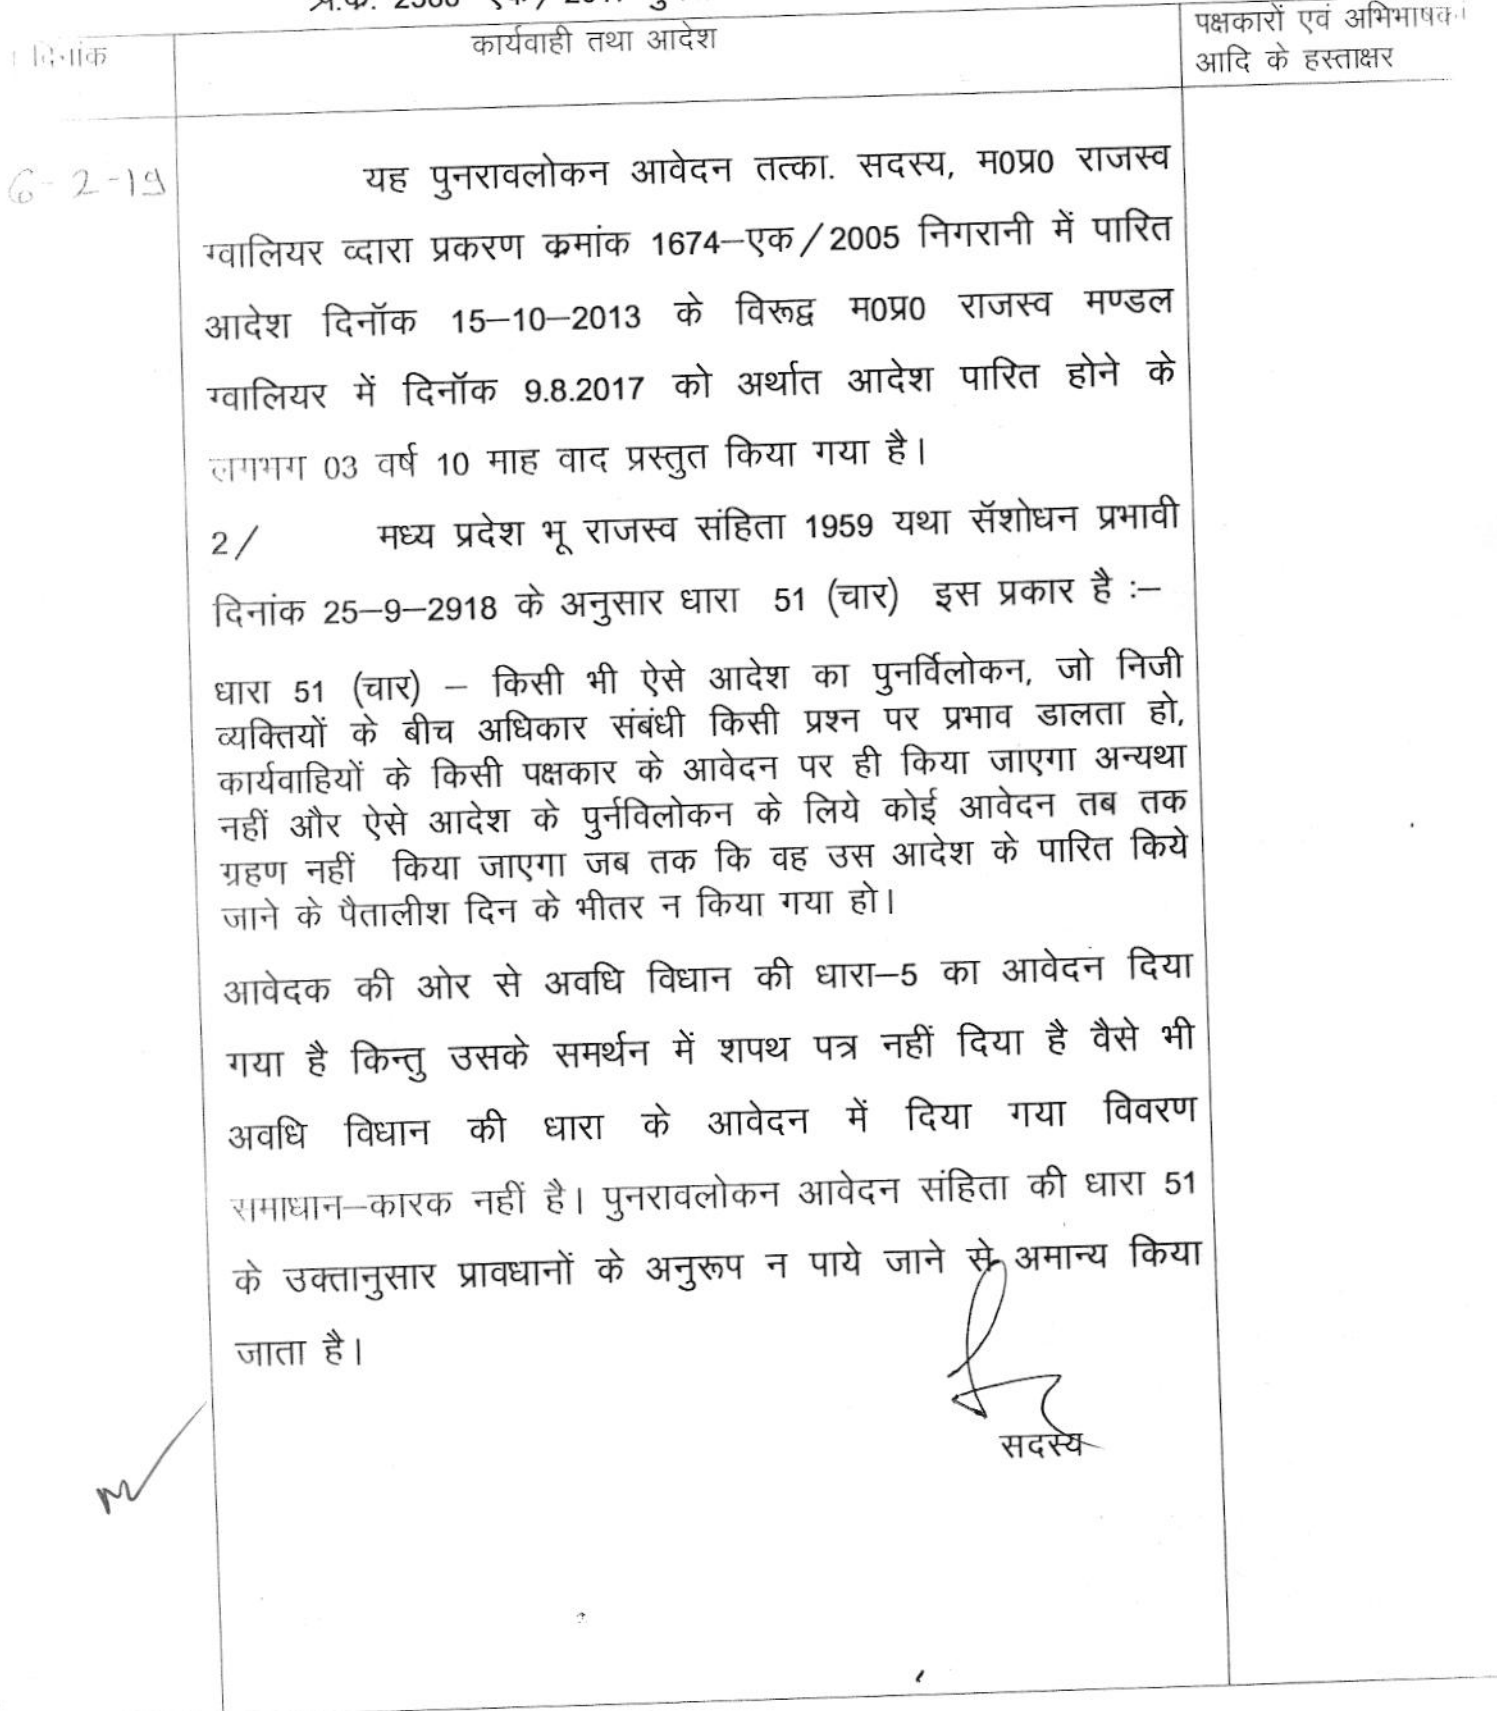 दिनांक
कार्यवाही तथा आदेश
पक्षकारों एवं अभिभाषक
आदि के हस्ताक्षर
6-2-19
यह पुनरावलोकन आवेदन तत्का. सदस्य, म0प्र0 राजस्व
ग्वालियर व्दारा प्रकरण क्रमांक 1674–एक/2005 निगरानी में पारित
आदेश दिनॉक 15–10–2013 के विरूद्व म0प्र0 राजस्व मण्डल
ग्वालियर में दिनॉक 9.8.2017 को अर्थात आदेश पारित होने के
लगभग 03 वर्ष 10 माह वाद प्रस्तुत किया गया है।
2/ मध्य प्रदेश भू राजस्व संहिता 1959 यथा सॅशोधन प्रभावी
दिनांक 25–9–2918 के अनुसार धारा 51 (चार) इस प्रकार है :–
धारा 51 (चार) – किसी भी ऐसे आदेश का पुनर्विलोकन, जो निजी
व्यक्तियों के बीच अधिकार संबंधी किसी प्रश्न पर प्रभाव डालता हो,
कार्यवाहियों के किसी पक्षकार के आवेदन पर ही किया जाएगा अन्यथा
नहीं और ऐसे आदेश के पुर्नविलोकन के लिये कोई आवेदन तब तक
ग्रहण नहीं किया जाएगा जब तक कि वह उस आदेश के पारित किये
जाने के पैतालीश दिन के भीतर न किया गया हो।
आवेदक की ओर से अवधि विधान की धारा–5 का आवेदन दिया
गया है किन्तु उसके समर्थन में शपथ पत्र नहीं दिया है वैसे भी
अवधि विधान की धारा के आवेदन में दिया गया विवरण
समाधान–कारक नहीं है। पुनरावलोकन आवेदन संहिता की धारा 51
के उक्तानुसार प्रावधानों के अनुरूप न पाये जाने से अमान्य किया
जाता है।
सदस्य